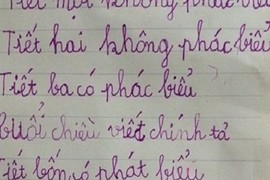 Tiết một không phác biểu
Tiết hai không phác biểu
Tiết ba có phác biểu
buổi chiều viết chính tả
Tiết bốn có phát biểu